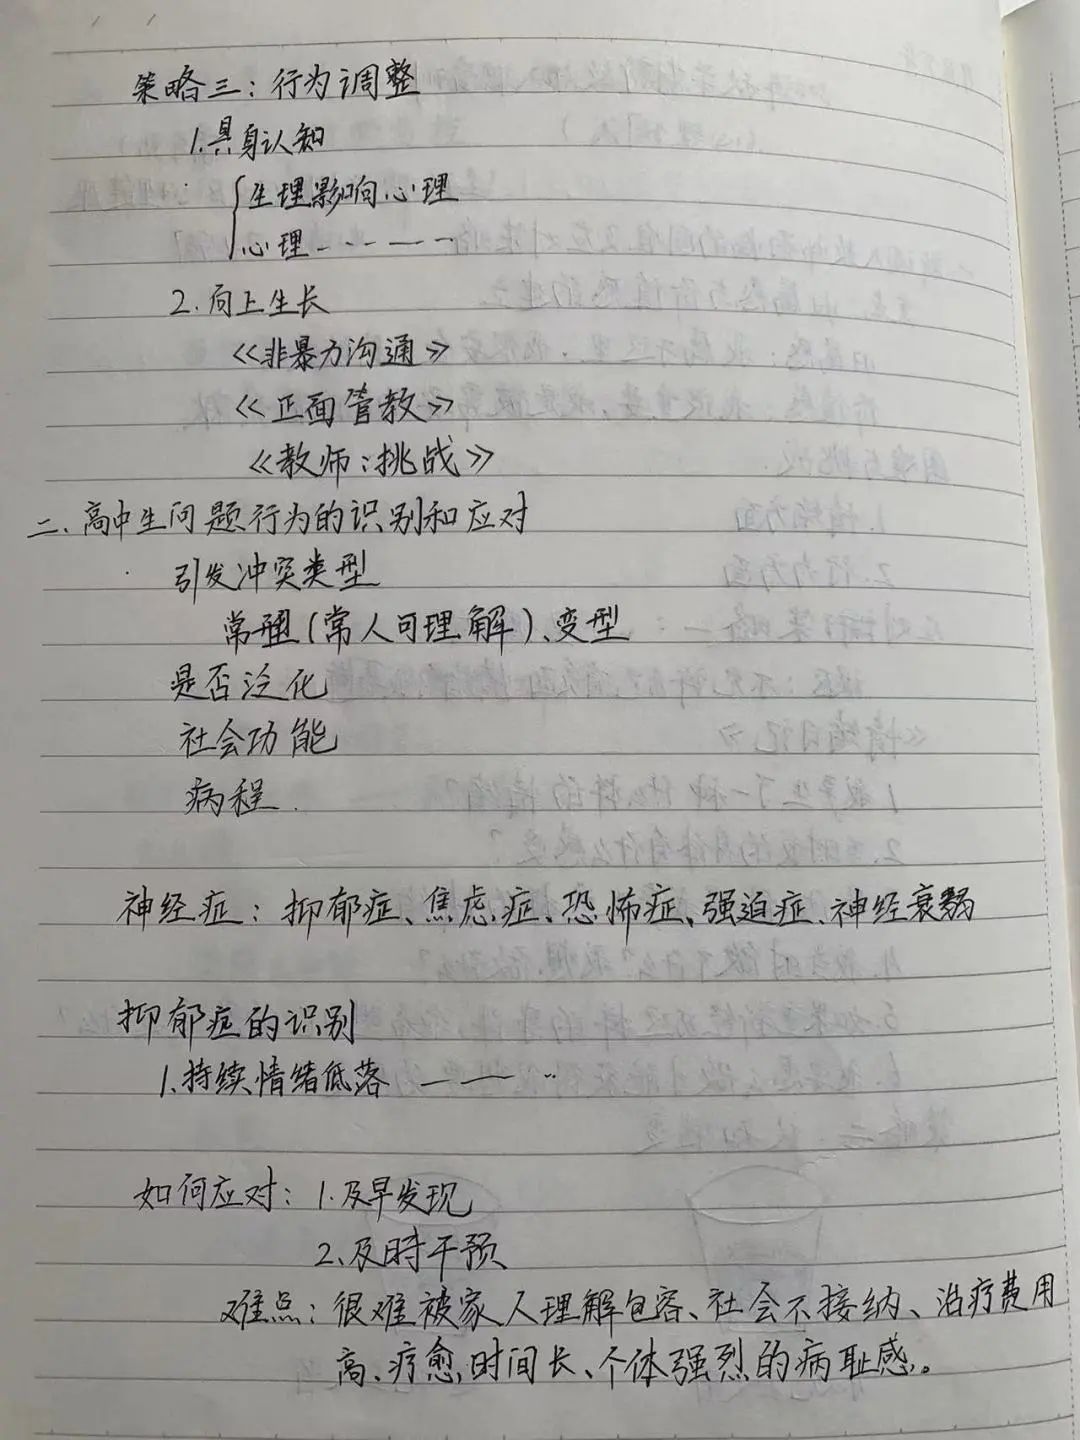 策略三：行为调整
1.具身认知
生理影响心理
心理——————
2.向上生长
《非暴力沟通》
《正面管教》
《教师：挑战》
二、高中生问题行为的识别和应对
引发冲突类型
常型（常人可理解）、变型
是否泛化
社会功能
病程.
神经症：抑郁症、焦虑症、恐怖症、强迫症、神经衰弱
抑郁症的识别
1.持续情绪低落 ———…
如何应对：1.及早发现
2.及时干预
难点：很难被家人理解包容、社会不接纳、治疗费用
高、疗愈时间长、个体强烈的病耻感。